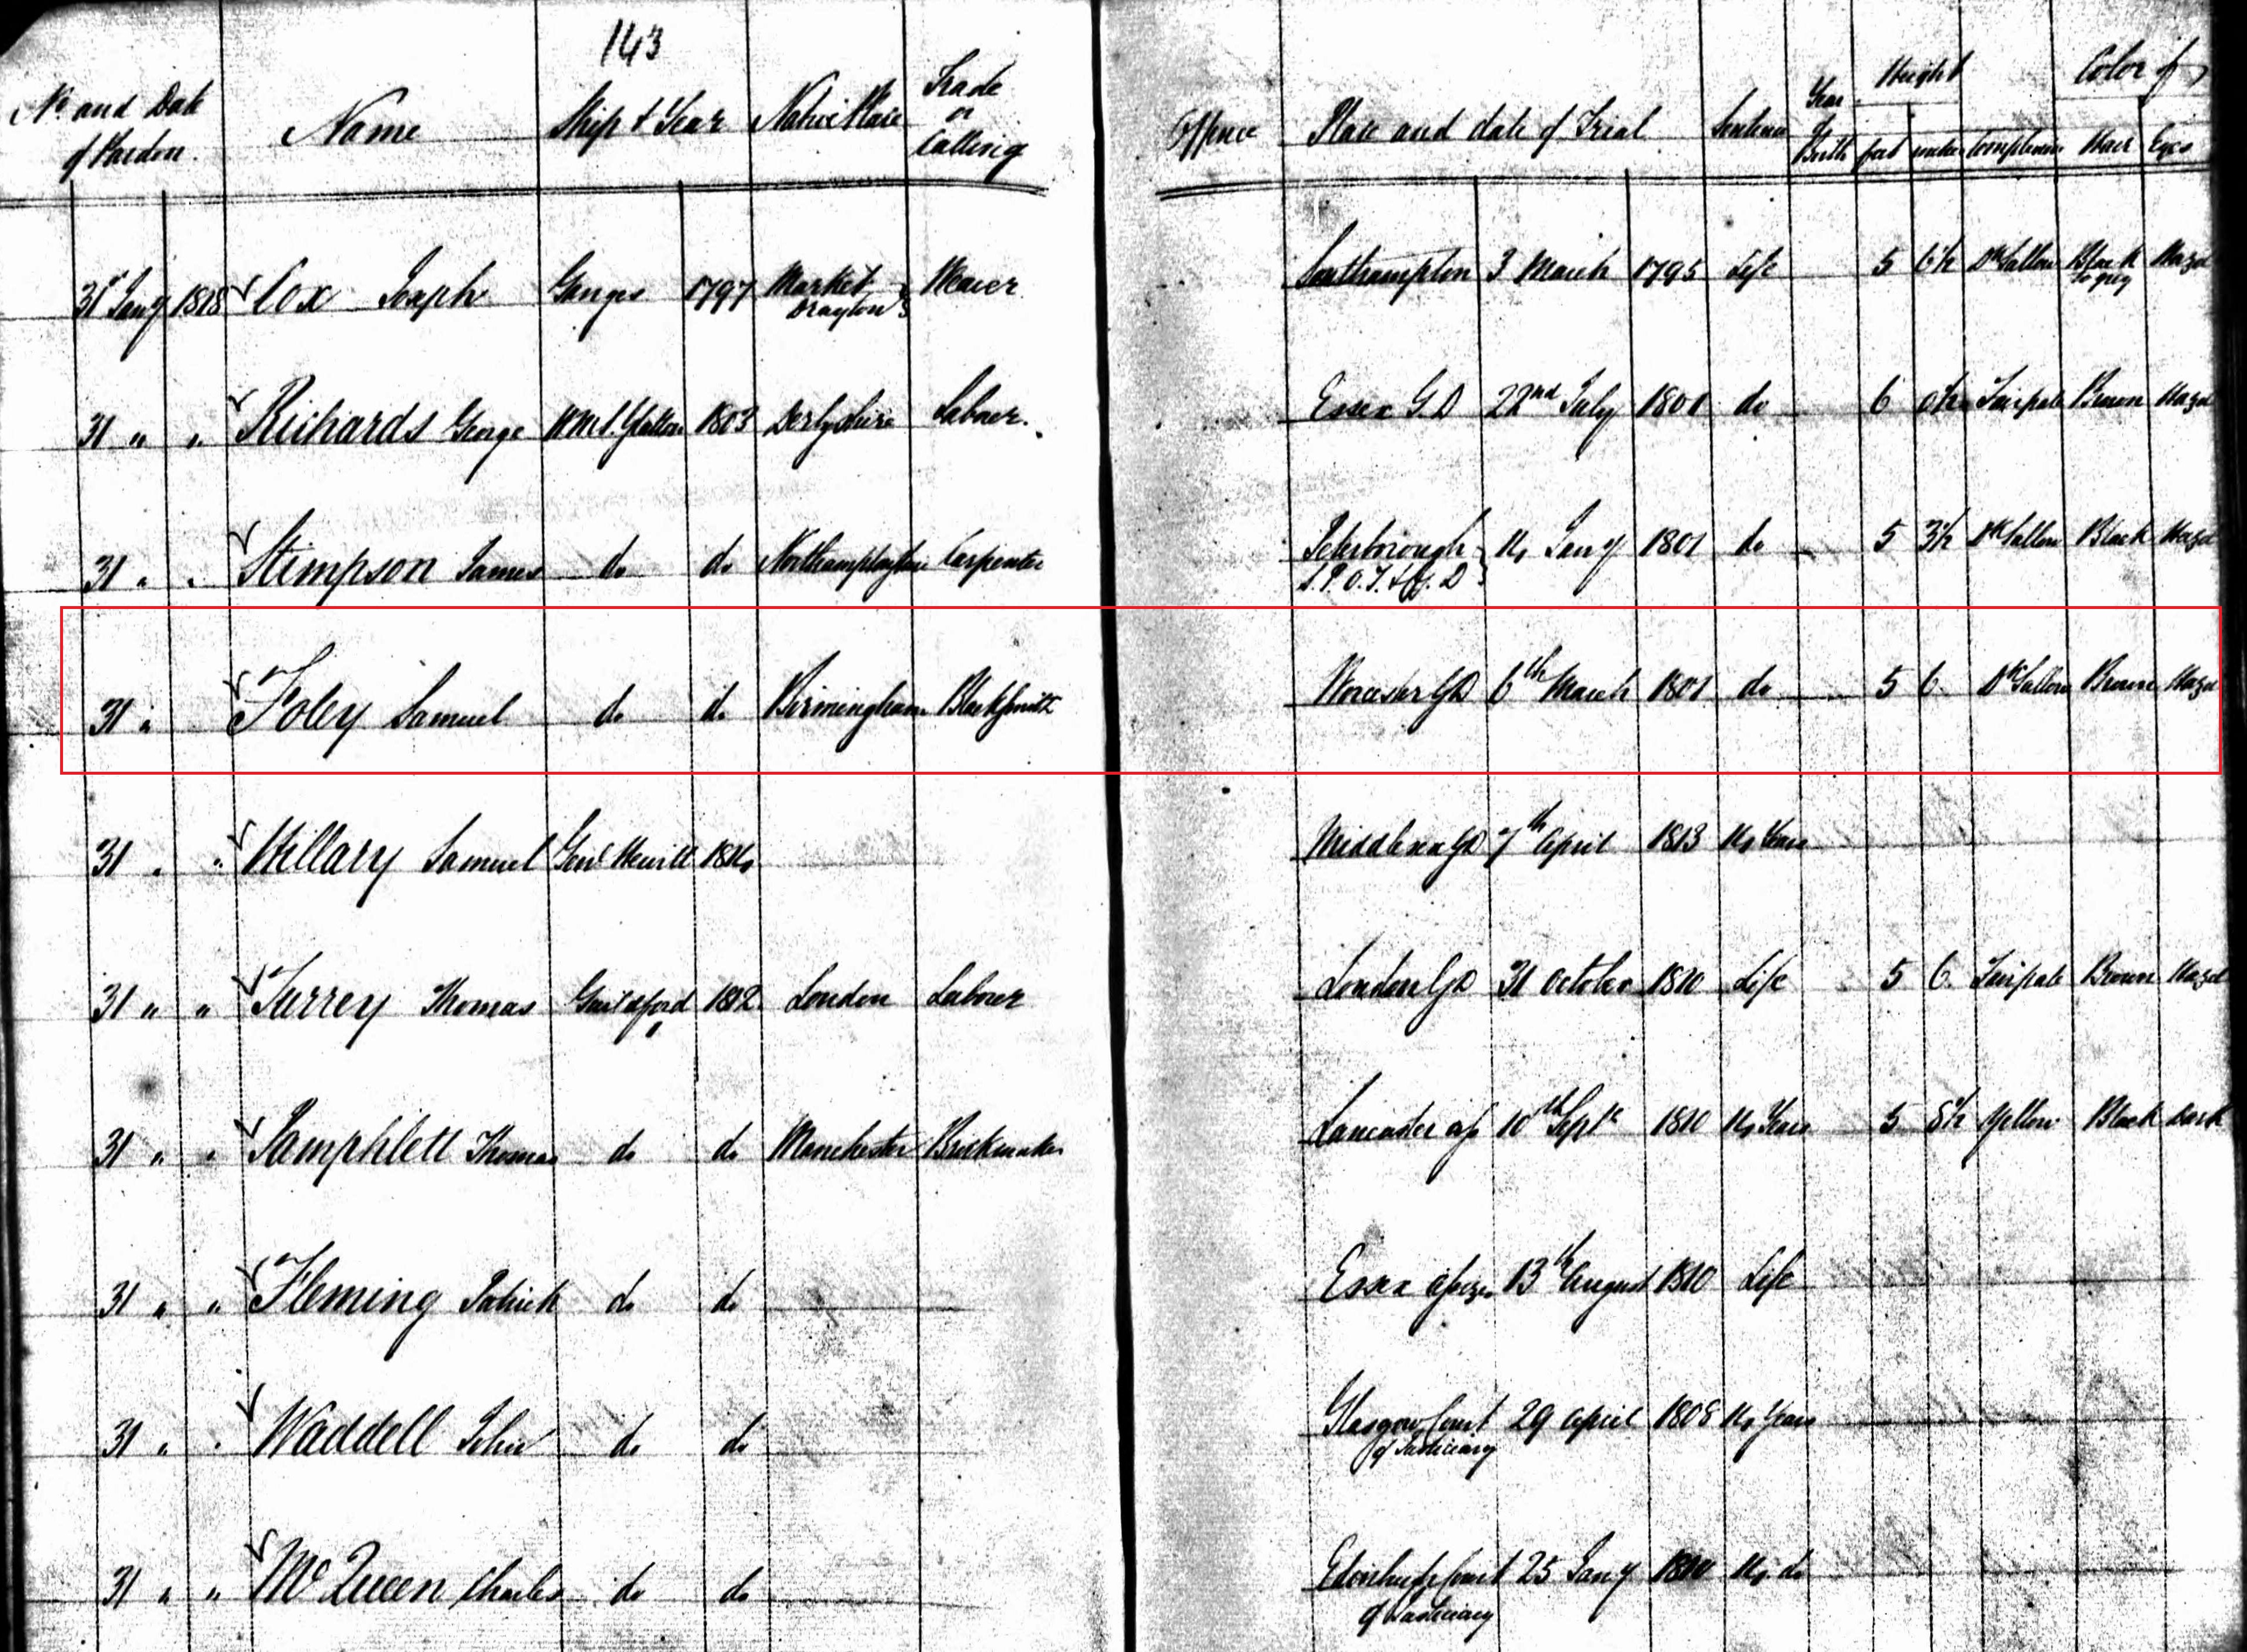 143
No. and Date of Pardon. Name Ship & Year Native Place Trade or Calling Offence Place and date of Trial Sentence Year of Birth Height feet inches Complexion Color of Hair Eyes
31st Jany 1818 Cox Joseph Ganges 1797 Market Drayton Southampton 3 March 1795 Life 5 6½ Dk Sallow Black to grey Hazel
31 " " Richards George H.M.S. Glatton 1803 Derbyshire Labour. Essex G.D 22nd July 1801 do 6 0½ Fair pale Brown Hazel
31 " " Stimpson James do do Northamptonshire Carpenter Peterborough 14 Jany 1801 do 5 3½ Dk Sallow Black Hazel
31 " Foley Samuel do do Birmingham Blacksmith Worcester G D 6th March 1801 do 5 6 Dk Sallow Brown Hazel
31 " " Hillary Samuel Genl Hewitt 1814 Middlesex G D 7th April 1813 14 Years
31 " " Turrey Thomas Guildford 1812. London Labourer London G D 31 October 1810 Life 5 6 Fair pale Brown Hazel
31 " " Pamphlett Thomas do do Manchester Brickmaker Lancaster 10th Septr 1810 14 Years 5 Yellow Black Dark
31 " " Fleming Patrick do do Essex Assizes 13th August 1810 Life
31 " " Waddell John do do Glasgow Court of Justiciary 29 April 1808 14 Years
31 " " McQueen Charles do do Edinburgh Court of Justiciary 25 Jany 1810 14 do